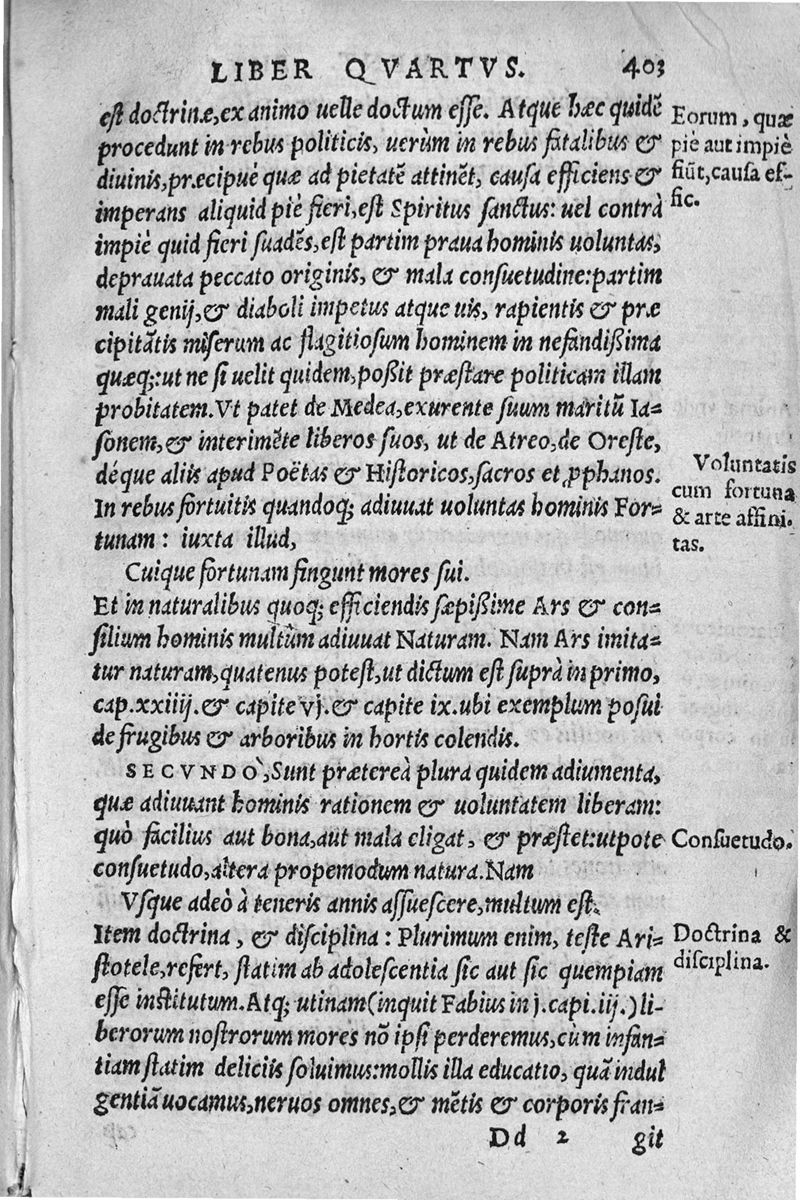 LIBER QVARTVS. 403
est doctrinæ, ex animo uelle doctum esse. Atque hæc quidẽ
procedunt in rebus politicis, uerùm in rebus fatalibus &
diuinis, præcipuè quæ ad pietatẽ attinẽt, causa efficiens &
imperans aliquid piè fieri, est Spiritus sanctus: uel contrà
impiè quid fieri suadẽs, est partim praua hominis uoluntas,
deprauata peccato originis, & mala consuetudine: partim
mali genij, & diaboli impetus atque uis, rapientis & præ
cipitãtis miserum ac flagitiosum hominem in nefandißima
quæq;: ut ne si uelit quidem, poßit præstare politicam illam
probitatem. Vt patet de Medea, exurente suum maritũ Ia=
sonem, & interimẽte liberos suos, ut de Atreo, de Oreste,
déque aliis apud Poëtas & Historicos, sacros et ꝓphanos.
In rebus fortuitis quandoq; adiuuat uoluntas hominis For=
tunam: iuxta illud,
Cuique fortunam fingunt mores sui.
Et in naturalibus quoq; efficiendis sæpißime Ars & con=
silium hominis multùm adiuuat Naturam. Nam Ars imita=
tur naturam, quatenus potest, ut dictum est suprà in primo,
cap. xxiiij. & capite vj. & capite ix. ubi exemplum posui
de frugibus & arboribus in hortis colendis.
SECVNDÒ, Sunt prætereà plura quidem adiumenta,
quæ adiuuant hominis rationem & uoluntatem liberam:
quò facilius aut bona, aut mala eligat, & præstet: utpote
consuetudo, altera propemodum natura. Nam
Vsque adeò à teneris annis assuescere, multum est.
Item doctrina, & disciplina: Plurimum enim, teste Ari=
stotele, refert, statim ab adolescentia sic aut sic quempiam
esse institutum. Atq; utinam (inquit Fabius in j. capi. iij.) li-
berorum nostrorum mores nõ ipsi perderemus, cùm infan=
tiam statim deliciis soluimus: mollis illa educatio, quã indul
gentiã uocamus, neruos omnes, & mẽtis & corporis fran=
Dd 2 git
Eorum, quæ
piè aut impiè
fiũt, causa ef-
fic.
Voluntatis
cum fortuna
& arte affini-
tas.
Consuetudo.
Doctrina &
disciplina.